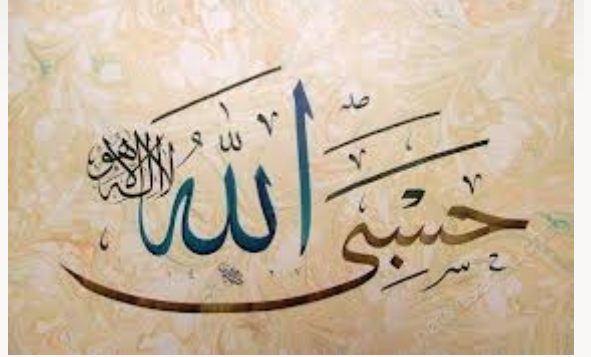 حسبى الله
لا اله الا هو